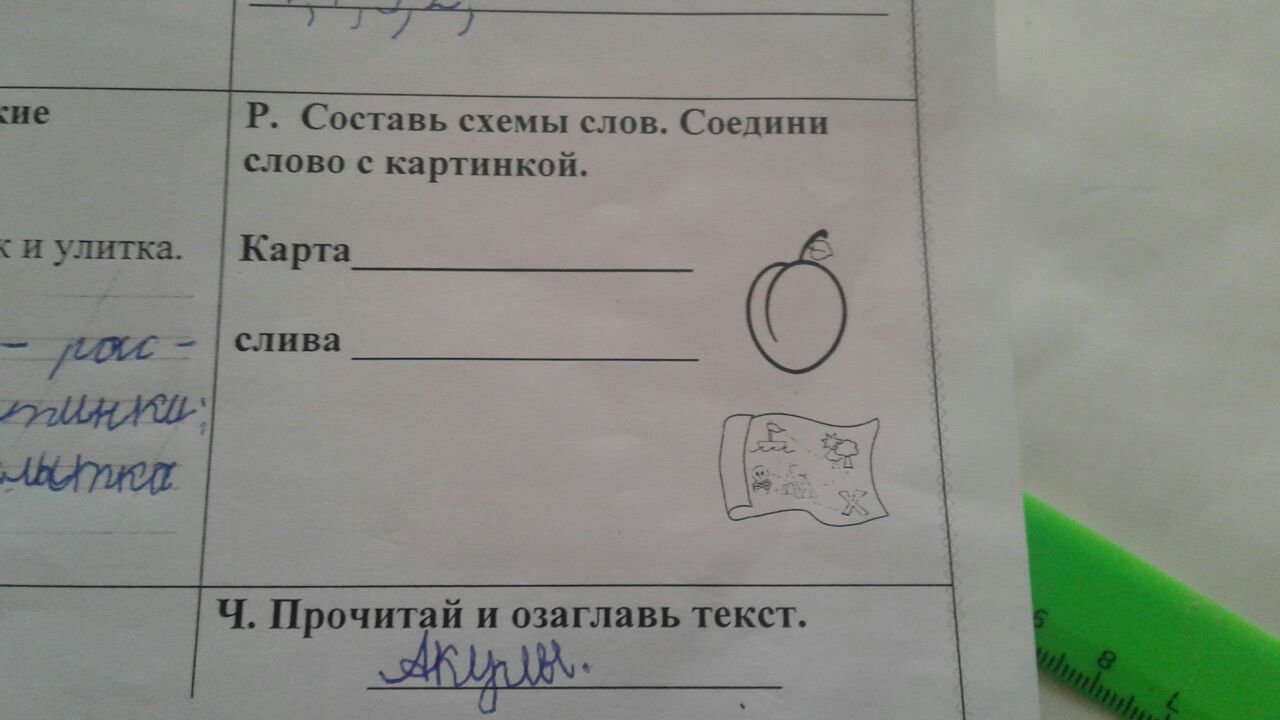 кие
к и улитка.
- рас -
тинки;
лытка
Р. Составь схемы слов. Соедини
слово с картинкой.
Карта
слива
X
Ч. Прочитай и озаглавь текст.
Акулы.
6
8
7